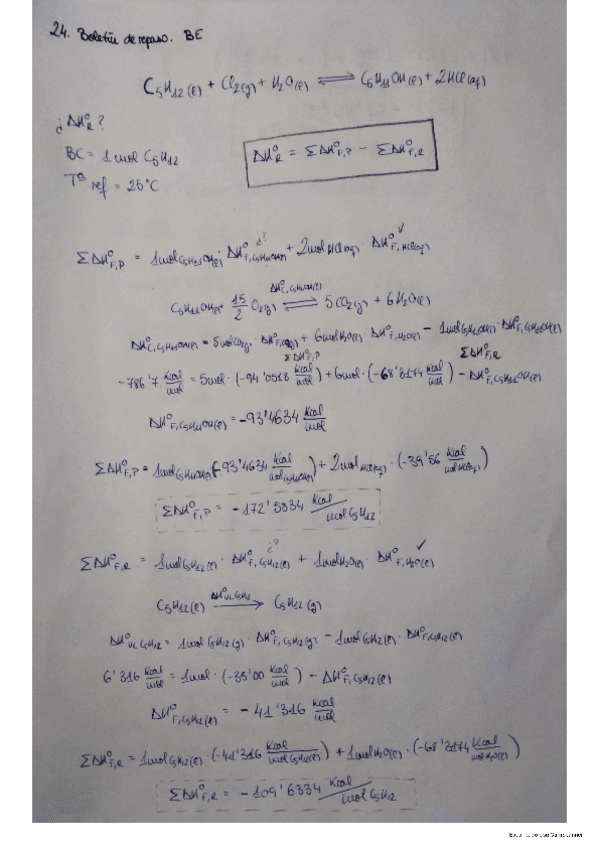 24. Boletín de repaso. BE
C5H12(l) + Cl2(g) + H2O(l) ⇌ C5H11OH(l) + 2HCl(aq)
¿ΔH°R?
BC = 1mol C5H12
ΔH°R = ΣΔH°F,P − ΣΔH°F,R
Tª ref = 25°C
ΣΔH°F,P = 1mol C5H11OH(l) · ΔH°F,C5H11OH(l) ¿? + 2mol HCl(aq) · ΔH°F,HCl(aq) ✓
C5H11OH(l) + 15/2 O2(g) ⇌ ΔH°C,C5H11OH(l) 5CO2(g) + 6H2O(l)
ΔH°C,C5H11OH(l) = 5mol CO2(g) · ΔH°F,CO2(g) + 6mol H2O(l) · ΔH°F,H2O(l) − 1mol C5H11OH(l) · ΔH°F,C5H11OH(l)
ΣΔH°F,P ΣΔH°F,R
−786'7 Kcal/mol = 5mol · (−94'0518 Kcal/mol) + 6mol · (−68'3174 Kcal/mol) − ΔH°F,C5H11OH(l)
ΔH°F,C5H11OH(l) = −93'4634 Kcal/mol
ΣΔH°F,P = 1mol C5H11OH(l) (−93'4634 Kcal/mol C5H11OH(l)) + 2mol HCl(aq) · (−39'56 Kcal/mol HCl(aq))
ΣΔH°F,P = −172'5834 Kcal/mol C5H12
ΣΔH°F,R = 1mol C5H12(l) · ΔH°F,C5H12(l) ¿? + 1mol H2O(l) · ΔH°F,H2O(l) ✓
C5H12(l) ΔH°v,C5H12 → C5H12(g)
ΔH°v,C5H12 = 1mol C5H12(g) · ΔH°F,C5H12(g) − 1mol C5H12(l) · ΔH°F,C5H12(l)
6'316 Kcal/mol = 1mol · (−35'00 Kcal/mol) − ΔH°F,C5H12(l)
ΔH°F,C5H12(l) = −41'316 Kcal/mol
ΣΔH°F,R = 1mol C5H12(l) · (−41'316 Kcal/mol C5H12(l)) + 1mol H2O(l) · (−68'3174 Kcal/mol H2O(l))
ΣΔH°F,R = −109'6334 Kcal/mol C5H12